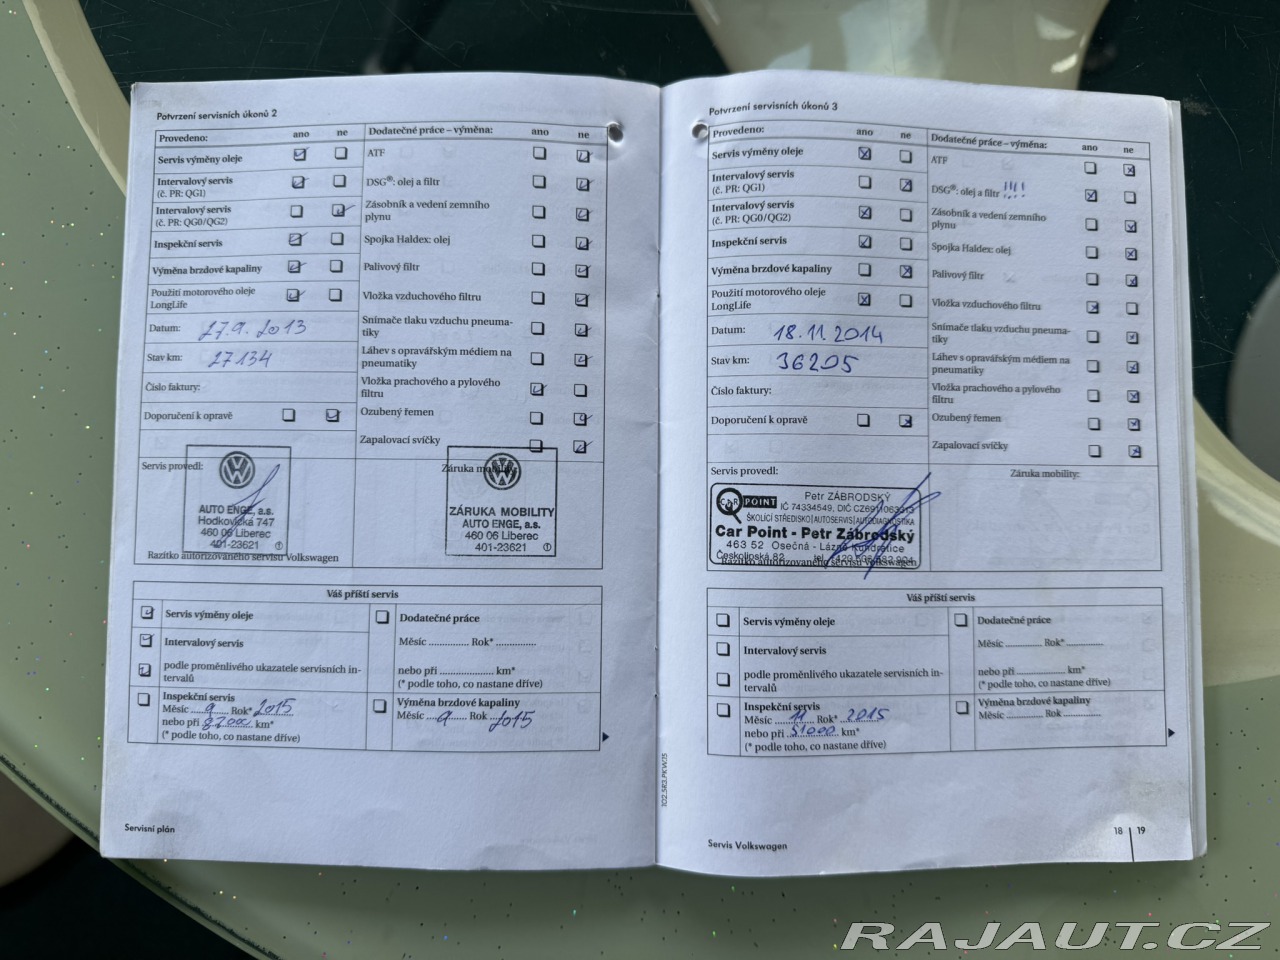 Potvrzení servisních úkonů 2
Provedeno: ano ne
Servis výměny oleje
Intervalový servis
(č. PR: QG1)
Intervalový servis
(č. PR: QG0/QG2)
Inspekční servis
Výměna brzdové kapaliny
Použití motorového oleje
LongLife
Datum: 27.9.2013
Stav km: 27134
Číslo faktury:
Doporučení k opravě
Dodatečné práce – výměna: ano ne
ATF
DSG®: olej a filtr
Zásobník a vedení zemního
plynu
Spojka Haldex: olej
Palivový filtr
Vložka vzduchového filtru
Snímače tlaku vzduchu pneuma-
tiky
Láhev s opravářským médiem na
pneumatiky
Vložka prachového a pylového
filtru
Ozubený řemen
Zapalovací svíčky
Servis provedl:
AUTO ENGE, a.s.
Hodkovická 747
460 06 Liberec
401-23621 ①
Razítko autorizovaného servisu Volkswagen
Záruka mobility:
ZÁRUKA MOBILITY
AUTO ENGE, a.s.
460 06 Liberec
401-23621 ①
Váš příští servis
Servis výměny oleje
Intervalový servis
podle proměnlivého ukazatele servisních in-
tervalů
Inspekční servis
Měsíc 9 Rok* 2015
nebo při km*
(* podle toho, co nastane dříve)
Dodatečné práce
Měsíc ............. Rok* .............
nebo při .................. km*
(* podle toho, co nastane dříve)
Výměna brzdové kapaliny
Měsíc 9 Rok 2015
Servisní plán
Potvrzení servisních úkonů 3
Provedeno: ano ne
Servis výměny oleje
Intervalový servis
(č. PR: QG1)
Intervalový servis
(č. PR: QG0/QG2)
Inspekční servis
Výměna brzdové kapaliny
Použití motorového oleje
LongLife
Datum: 18.11.2014
Stav km: 36205
Číslo faktury:
Doporučení k opravě
Dodatečné práce – výměna: ano ne
ATF
DSG®: olej a filtr !!!!
Zásobník a vedení zemního
plynu
Spojka Haldex: olej
Palivový filtr
Vložka vzduchového filtru
Snímače tlaku vzduchu pneuma-
tiky
Láhev s opravářským médiem na
pneumatiky
Vložka prachového a pylového
filtru
Ozubený řemen
Zapalovací svíčky
Servis provedl:
CAR POINT
Petr ZÁBRODSKÝ
IČ 74334549, DIČ
ŠKOLÍCÍ STŘEDISKO|AUTOSERVIS|AUTODIAGNOSTIKA
Car Point - Petr Zábrodský
463 52 Osečná - Lázně Kundratice
Českolipská 82
Razítko autorizovaného servisu Volkswagen
Záruka mobility:
Váš příští servis
Servis výměny oleje
Intervalový servis
podle proměnlivého ukazatele servisních in-
tervalů
Inspekční servis
Měsíc 11 Rok* 2015
nebo při 51000 km*
(* podle toho, co nastane dříve)
Dodatečné práce
Měsíc ............. Rok* .............
nebo při .................. km*
(* podle toho, co nastane dříve)
Výměna brzdové kapaliny
Měsíc ............. Rok .............
102.5R3.PKW.15
Servis Volkswagen
18 | 19
RAJAUT.CZ